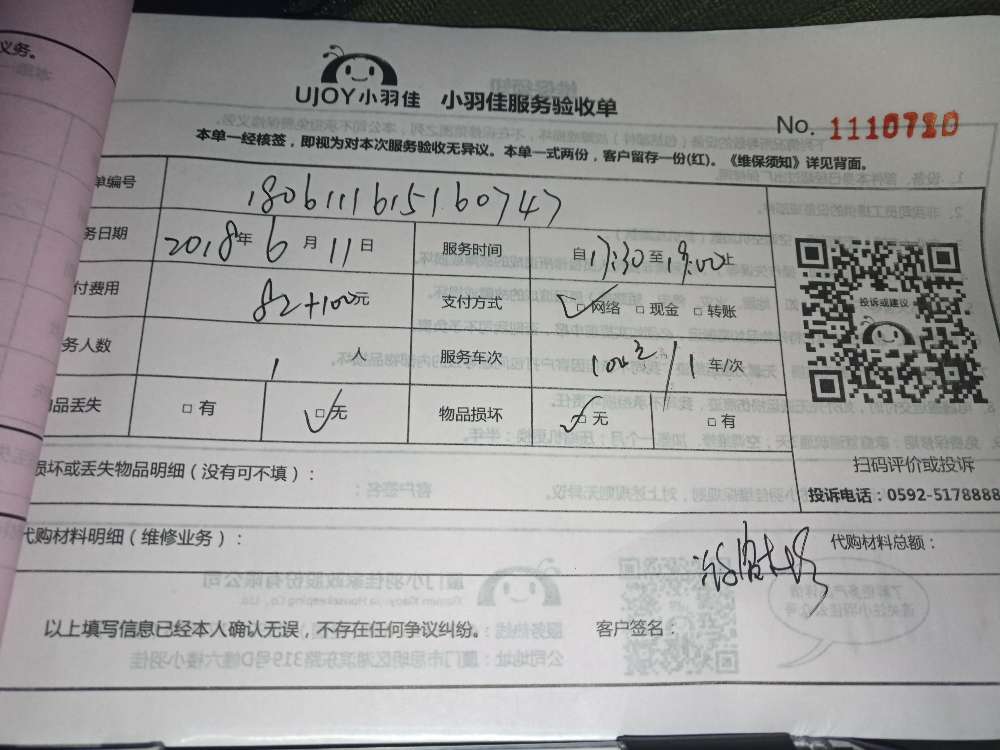 义务。
UJOY小羽佳 小羽佳服务验收单
No. 1110720
本单一经核签，即视为对本次服务验收无异议。本单一式两份，客户留存一份(红)。《维保须知》详见背面。
单编号 1806111615160747
务日期 2018年 6 月 11 日 服务时间 自17:30至19:00止
付费用 82+100元 支付方式 □网络 □现金 □转账
投诉或建议
务人数 1 人 服务车次 1 车/次
品丢失 □有 □无 物品损坏 □无 □有
扫码评价或投诉
损坏或丢失物品明细（没有可不填）：
投诉电话：0592-5178888
代购材料明细（维修业务）： 代购材料总额：
以上填写信息已经本人确认无误，不存在任何争议纠纷。 客户签名：